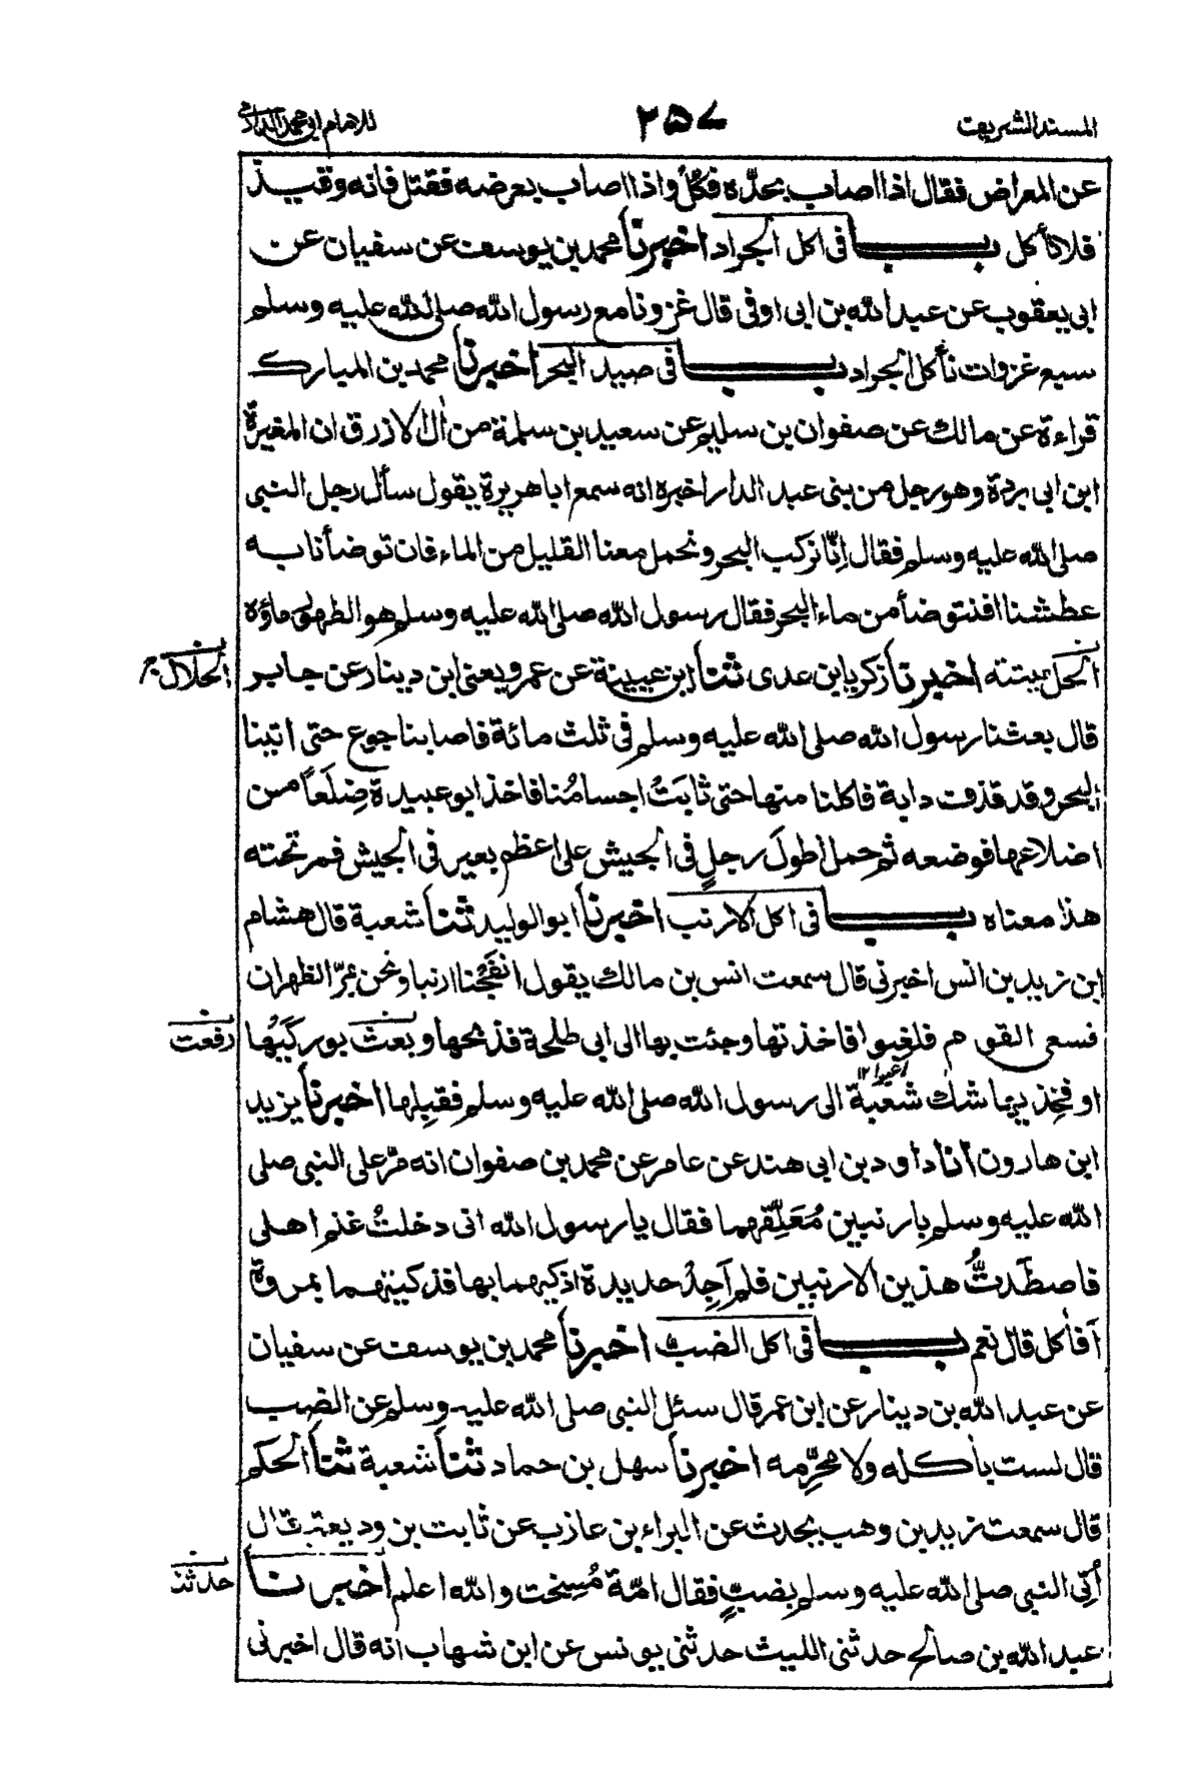 المسند الشريف ٢٥٧ للامام ابي محمد الدارمي
عن المعراض فقال اذا اصاب بحدّه فكُل واذا اصاب بعرضه فقتل فانه وقيذ
فلا تأكل باب فى اكل الجراد اخبرنا محمد بن يوسف عن سفيان عن
ابى يعقوب عن عبد الله بن ابى اوفى قال غزونا مع رسول الله صلى الله عليه وسلم
سبع غزوات نأكل الجراد باب فى صيد البحر اخبرنا محمد بن المبارك
قراءة عن مالك عن صفوان بن سليم عن سعيد بن سلمة من اٰل الازرق ان المغيرة
ابن ابى بردة وهو رجل من بنى عبد الدار اخبره انه سمع ابا هريرة يقول سأل رجل النبى
صلى الله عليه وسلم فقال اِنّا نركب البحر ونحمل معنا القليل من الماء فان توضأنا به
عطشنا افنتوضأ من ماء البحر فقال رسول الله صلى الله عليه وسلم هو الطهور ماؤه
الحل ميتته اخبرنا زكريا بن عدى ثنا ابن عيينة عن عمرو يعنى ابن دينار عن جابر
الحلال
قال بعثنا رسول الله صلى الله عليه وسلم فى ثلث مائة فاصابنا جوع حتى اتينا
البحر وقد قذفت دابة فاكلنا منها حتى ثابَتْ اجسامُنا فاخذ ابو عبيدة ضِلَعاً من
اضلاعها فوضعه ثم حمل اطولَ رجلٍ فى الجيش على اعظم بعير فى الجيش فمر تحته
هذا معناه باب فى اكل الارنب اخبرنا ابو الوليد ثنا شعبة قال هشام
ابن زيد بن انس اخبرنى قال سمعت انس بن مالك يقول انفَجْنا ارنبا ونحن بمرّ الظهران
فسعى القوم فلغبوا فاخذتها وجئت بها الى ابى طلحة فذبحها وبعث بوركَيْها
دفعت
اعيوا ١٢
او فخِذيها شك شعبة الى رسول الله صلى الله عليه وسلم فقبِلها اخبرنا يزيد
ابن هارون انا داود بن ابى هند عن عامر عن محمد بن صفوان انه مرّ على النبى صلى
الله عليه وسلم بارنبين مُعَلِّقهما فقال يا رسول الله انى دخلتُ غنم اهلى
فاصطَدتُّ هذين الارنبين فلم اَجِدْ حديدة اذكيهما بها فذكيتهما بمروة
اَفاٰكل قال نعم باب فى اكل الضب اخبرنا محمد بن يوسف عن سفيان
عن عبد الله بن دينار عن ابن عمر قال سئل النبى صلى الله عليه وسلم عن الضب
قال لست باٰكله ولا محرِّمه اخبرنا سهل بن حماد ثنا شعبة ثنا الحكم
قال سمعت زيد بن وهب يحدث عن البراء بن عازب عن ثابت بن وديعة قال
اُتِى النبى صلى الله عليه وسلم بضبٍّ فقال امّة مُسِخت والله اعلم اخبرنا
حدثنا
عبد الله بن صالح حدثنى الليث حدثنى يونس عن ابن شهاب انه قال اخبرنى